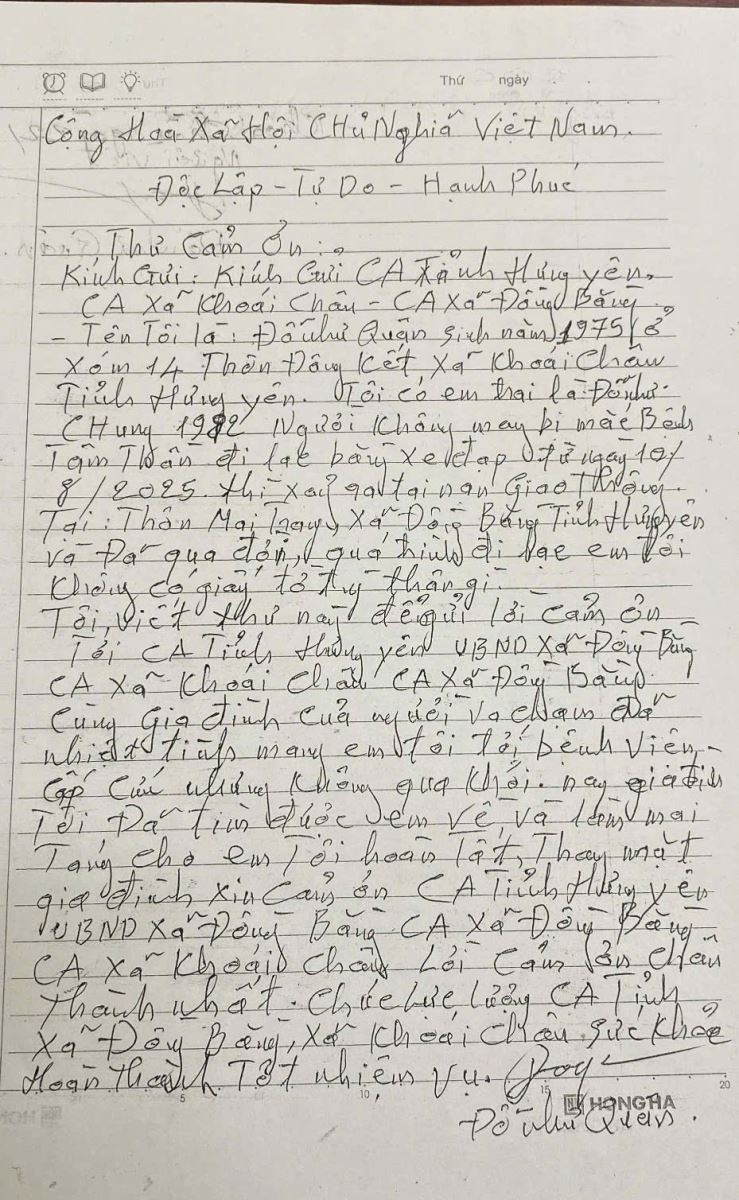 Thứ ngày
Cộng Hoà Xã Hội CHủ Nghiã Việt Nam.
Độc Lập - Tự Do - Hạnh Phúc
Thư Cảm Ơn:
Kính Gửi: Kính Gửi CA Tỉnh Hưng yên,
CA Xã Khoái Châu - CA Xã Đông Bằng
- Tên Tôi là: Đỗ như Quân sinh năm 1975/ở
Xóm 14 Thôn Đông Kết, Xã Khoái Châu
Tỉnh Hưng yên. Tôi có em trai là Đỗ như
CHung 1982 Người Không may bị mắc Bệnh
Tâm Thần đi lạc bằng xe đạp từ ngày 10/
8/2025. thì xảy ga tai nạn Giao Thông.
Tại: Thôn Mai trang, Xã Đông Bằng Tỉnh Hưng yên
và Đã qua đời, quá trình đi lạc em Tôi
Không có giấy tờ tùy thân gì.
Tôi, viết thư này để gửi lời cảm ơn
Tới CA Tỉnh Hưng yên UBND Xã Đông Bằng
CA Xã Khoái Châu CA Xã Đông Bằng
Cùng Gia đình của người va chạm đã
nhiệt tình mang em tôi tới bệnh viện,-
Cấp Cứu nhưng Không qua khỏi. nay gia đình
Tôi Đã tìm được em về, và làm mai
Táng cho em Tôi hoàn Tất, Thay mặt
gia đình xin Cảm ơn CA Tỉnh Hưng yên
UBND Xã Đông Bằng CA Xã Đông Bằng
CA Xã Khoái Châu Lời Cảm ơn Chân
Thành nhất. Chúc lực lượng CA Tỉnh
Xã Đông Bằng, Xã Khoái Châu sức khỏe
Hoàn thành Tốt nhiệm vụ.
5 10 15 20
HONG HA
Đỗ như Quân.